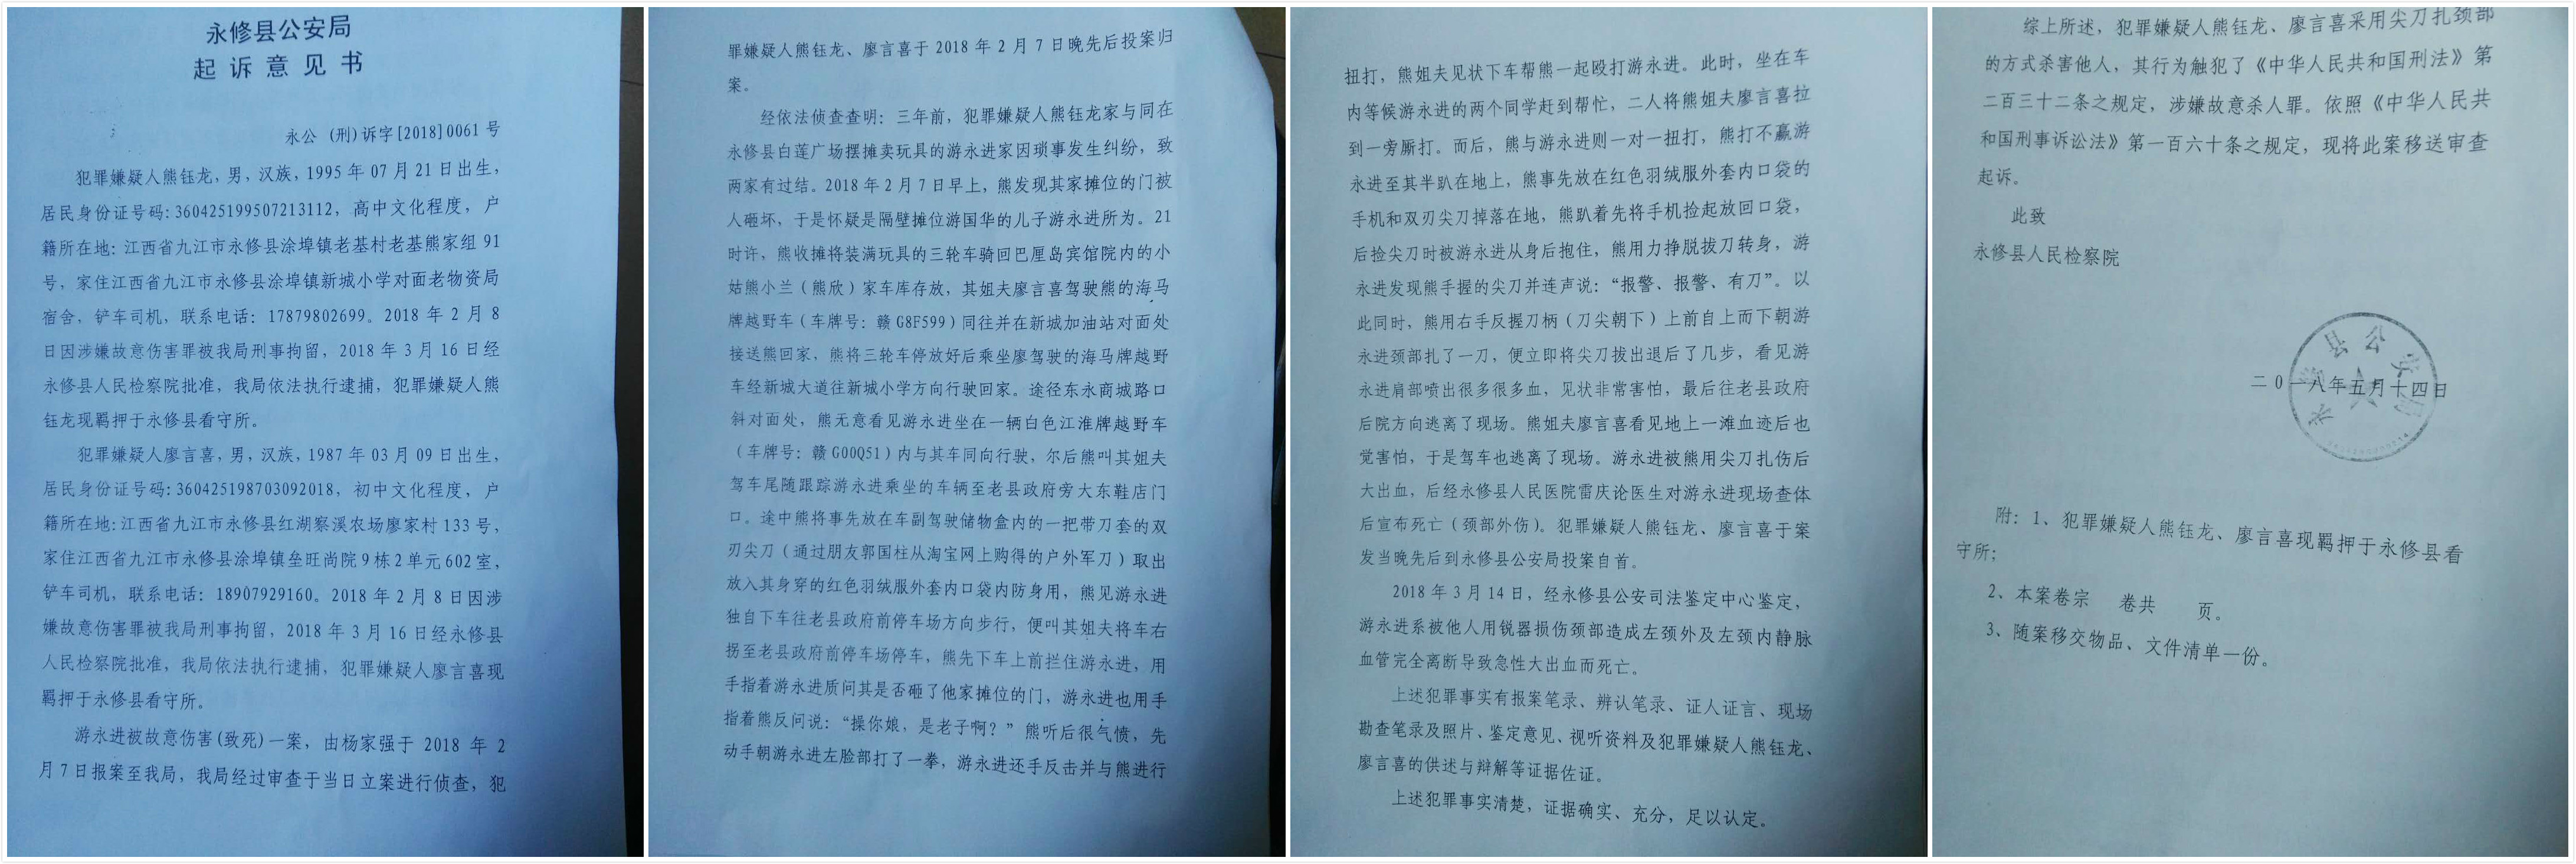 永修县公安局
起诉意见书
永公(刑)诉字[2018]0061号
犯罪嫌疑人熊钰龙，男，汉族，1995年07月21日出生，
居民身份证号码：360425199507213112，高中文化程度，户
籍所在地：江西省九江市永修县涂埠镇老基村老基熊家组91
号，家住江西省九江市永修县涂埠镇新城小学对面老物资局
宿舍，铲车司机，联系电话：17879802699。2018年2月8
日因涉嫌故意伤害罪被我局刑事拘留，2018年3月16日经
永修县人民检察院批准，我局依法执行逮捕，犯罪嫌疑人熊
钰龙现羁押于永修县看守所。
犯罪嫌疑人廖言喜，男，汉族，1987年03月09日出生，
居民身份证号码：360425198703092018，初中文化程度，户
籍所在地：江西省九江市永修县红湖察溪农场廖家村133号，
家住江西省九江市永修县涂埠镇垒旺尚院9栋2单元602室，
铲车司机，联系电话：18907929160。2018年2月8日因涉
嫌故意伤害罪被我局刑事拘留，2018年3月16日经永修县
人民检察院批准，我局依法执行逮捕，犯罪嫌疑人廖言喜现
羁押于永修县看守所。
游永进被故意伤害(致死)一案，由杨家强于2018年2
月7日报案至我局，我局经过审查于当日立案进行侦查，犯
罪嫌疑人熊钰龙、廖言喜于2018年2月7日晚先后投案归
案。
经依法侦查查明：三年前，犯罪嫌疑人熊钰龙家与同在
永修县白莲广场摆摊卖玩具的游永进家因琐事发生纠纷，致
两家有过结。2018年2月7日早上，熊发现其家摊位的门被
人砸坏，于是怀疑是隔壁摊位游国华的儿子游永进所为。21
时许，熊收摊将装满玩具的三轮车骑回巴厘岛宾馆院内的小
姑熊小兰（熊欣）家车库存放，其姐夫廖言喜驾驶熊的海马
牌越野车（车牌号：赣G8F599）同往并在新城加油站对面处
接送熊回家，熊将三轮车停放好后乘坐廖驾驶的海马牌越野
车经新城大道往新城小学方向行驶回家。途径东永商城路口
斜对面处，熊无意看见游永进坐在一辆白色江淮牌越野车
（车牌号：赣G00Q51）内与其车同向行驶，尔后熊叫其姐夫
驾车尾随跟踪游永进乘坐的车辆至老县政府旁大东鞋店门
口。途中熊将事先放在车副驾驶储物盒内的一把带刀套的双
刃尖刀（通过朋友郭国柱从淘宝网上购得的户外军刀）取出
放入其身穿的红色羽绒服外套内口袋内防身用，熊见游永进
独自下车往老县政府前停车场方向步行，便叫其姐夫将车右
拐至老县政府前停车场停车，熊先下车上前拦住游永进，用
手指着游永进质问其是否砸了他家摊位的门，游永进也用手
指着熊反问说：“操你娘，是老子啊？”熊听后很气愤，先
动手朝游永进左脸部打了一拳，游永进还手反击并与熊进行
扭打，熊姐夫见状下车帮熊一起殴打游永进。此时，坐在车
内等候游永进的两个同学赶到帮忙，二人将熊姐夫廖言喜拉
到一旁厮打。而后，熊与游永进则一对一扭打，熊打不赢游
永进至其半趴在地上，熊事先放在红色羽绒服外套内口袋的
手机和双刃尖刀掉落在地，熊趴着先将手机捡起放回口袋，
后捡尖刀时被游永进从身后抱住，熊用力挣脱拔刀转身，游
永进发现熊手握的尖刀并连声说：“报警、报警、有刀”。以
此同时，熊用右手反握刀柄（刀尖朝下）上前自上而下朝游
永进颈部扎了一刀，便立即将尖刀拔出退后了几步，看见游
永进肩部喷出很多很多血，见状非常害怕，最后往老县政府
后院方向逃离了现场。熊姐夫廖言喜看见地上一滩血迹后也
觉害怕，于是驾车也逃离了现场。游永进被熊用尖刀扎伤后
大出血，后经永修县人民医院雷庆论医生对游永进现场查体
后宣布死亡（颈部外伤）。犯罪嫌疑人熊钰龙、廖言喜于案
发当晚先后到永修县公安局投案自首。
2018年3月14日，经永修县公安司法鉴定中心鉴定，
游永进系被他人用锐器损伤颈部造成左颈外及左颈内静脉
血管完全离断导致急性大出血而死亡。
上述犯罪事实有报案笔录、辨认笔录、证人证言、现场
勘查笔录及照片、鉴定意见、视听资料及犯罪嫌疑人熊钰龙、
廖言喜的供述与辩解等证据佐证。
上述犯罪事实清楚，证据确实、充分，足以认定。
综上所述，犯罪嫌疑人熊钰龙、廖言喜采用尖刀扎颈部
的方式杀害他人，其行为触犯了《中华人民共和国刑法》第
二百三十二条之规定，涉嫌故意杀人罪。依照《中华人民共
和国刑事诉讼法》第一百六十条之规定，现将此案移送审查
起诉。
此致
永修县人民检察院
永修县公安局
二0一八年五月十四日
附：1、犯罪嫌疑人熊钰龙、廖言喜现羁押于永修县看
守所；
2、本案卷宗 卷共 页。
3、随案移交物品、文件清单一份。